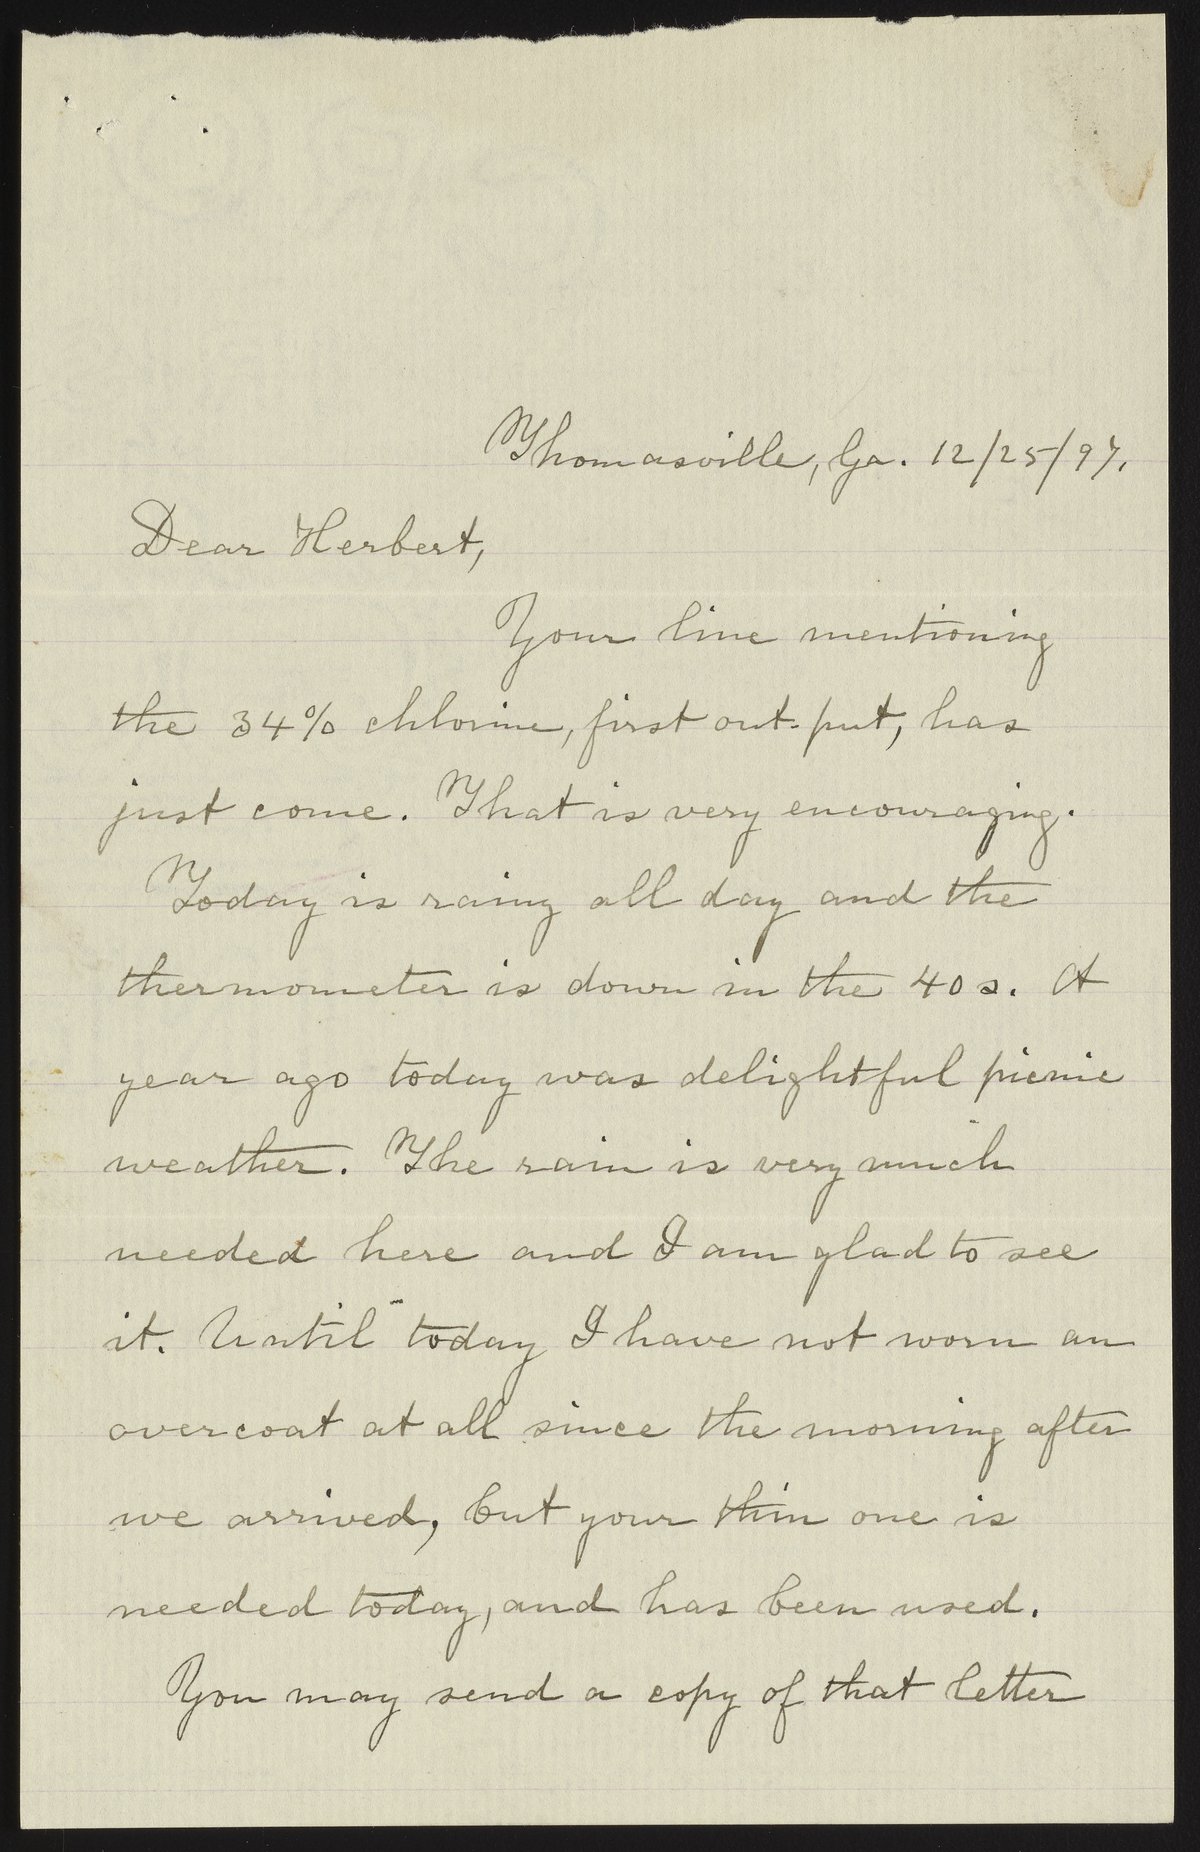 Thomasville, Ga. 12/25/97.
Dear Herbert,
Your line mentioning
the 34% chlorine, first out-put, has
just come. That is very encouraging.
Today is rainy all day and the
thermometer is down in the 40s. A
year ago today was delightful picnic
weather. The rain is very much
needed here and I am glad to see
it. Until today I have not worn an
overcoat at all since the morning after
we arrived, but your thin one is
needed today, and has been used.
You may send a copy of that letter